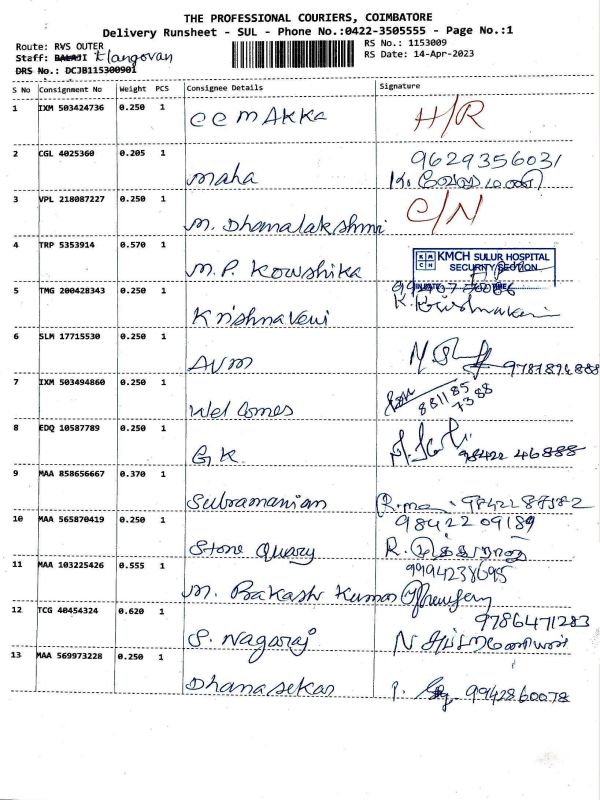 THE PROFESSIONAL COURIERS, COIMBATORE
Delivery Runsheet - SUL - Phone No.:0422-3505555 - Page No.:1
Route: RVS OUTER
RS No.: 1153009
Staff: BALAJI Elangovan
RS Date: 14-Apr-2023
DRS No.: DCJB115300901
S No Consignment No Weight PCS Consignee Details Signature
1 IXM 503424736 0.250 1 CCM AKKA H/R
9629356031
2 CGL 4025360 0.205 1 Maha K.
3 VPL 218087227 0.250 1 M. Dhanalakshmi C/N
4 TRP 5353914 0.570 1 M.P. Kowshika
KMCH SULUR HOSPITAL
SECURITY SECTION
5 TMG 200428343 0.250 1 Krishnaveni K.
6 SLM 17715530 0.250 1 AVM
7 IXM 503494860 0.250 1 Wel Comes 881185
7388
8 EDQ 10587789 0.250 1 G.K. 98422 46888
9 MAA 858656667 0.370 1 Subramanian
9842209189
10 MAA 565870419 0.250 1 Stone Quary R.
9994238695
11 MAA 103225426 0.555 1 M. Bakash Kumar
9786471283
12 TCG 40454324 0.620 1 S. Nagaraj N
13 MAA 569973228 0.250 1 Dhanasekar 9942860078